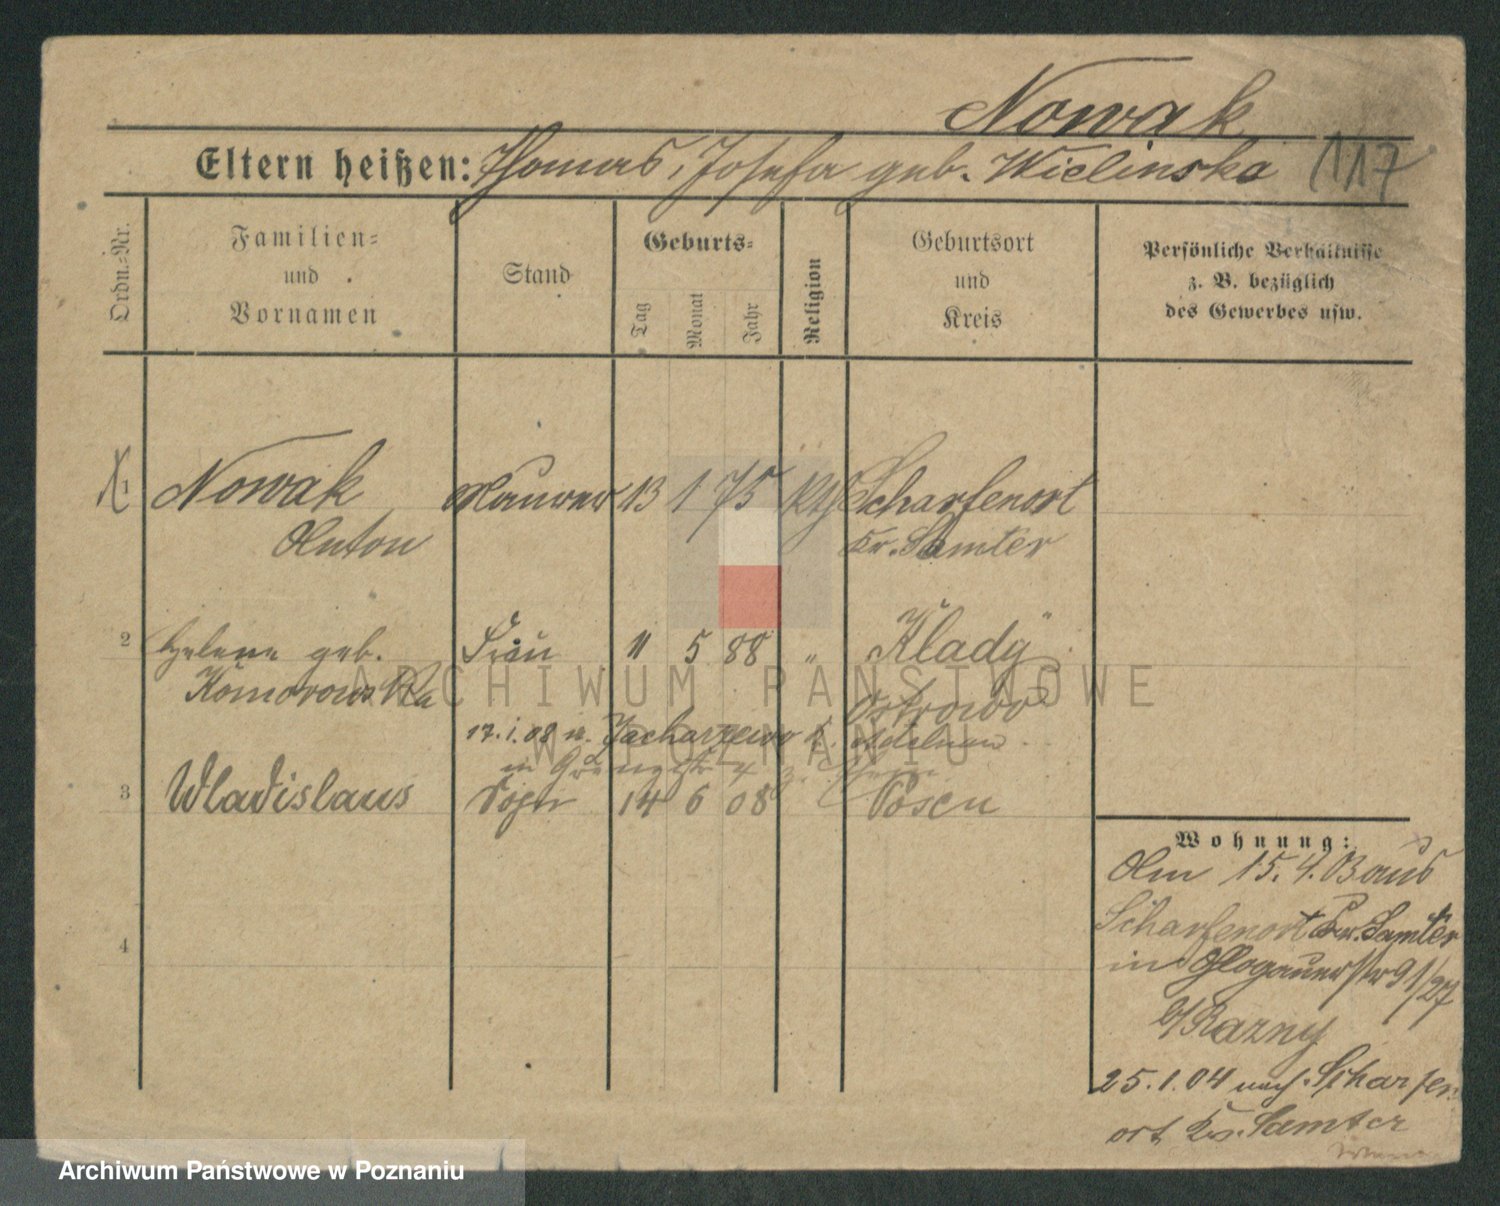 Nowak
Eltern heißen: Thomas, Josefa geb. Wielinska 117
Ordn.-Nr.
Familien- und Vornamen
Stand
Geburts-
Tag
Monat
Jahr
Religion
Geburtsort und Kreis
Persönliche Verhältnisse z. B. bezüglich des Gewerbes usw.
1 Nowak Maurer 13 1 75 kth Scharfenort
Anton Kr. Samter
2 Helene geb. Frau 11 5 88 " Klady
Komorowska Ostrowo
17.1.08 Zacharzewo Adelnau
in
3 Wladislaus Sohn 14 6 08 Posen
4
Wohnung:
Am 15.4.03 aus
Scharfenort Kr. Samter
in Glogauerstr 91/27
b/Razny
25.1.04 nach Scharfen-
ort Kr. Samter
ARCHIWUM PAŃSTWOWE
W POZNANIU
Archiwum Państwowe w Poznaniu